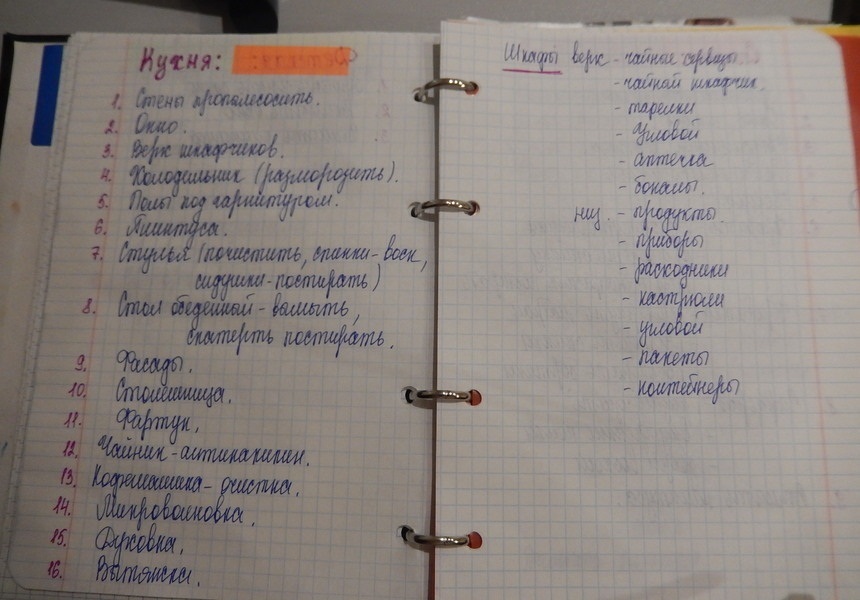 Кухня:
1. Стены пропылесосить.
2. Окно.
3. Верх шкафчиков.
4. Холодильник (разморозить).
5. Полы под гарнитуром.
6. Плинтуса.
7. Стулья (почистить, спинки-воск,
сидушки-постирать)
8. Стол обеденный - вымыть,
скатерть постирать.
9. Фасады.
10. Столешница.
11. Фартук.
12. Чайник - антинакипин.
13. Кофемашина - очистка.
14. Микроволновка.
15. Духовка.
16. Вытяжка.
Шкафы верх - чайные сервизы
- чайный шкафчик.
- тарелки
- угловой
- аптечка
- бокалы.
низ. - продукты.
- приборы
- расходники
- кастрюли
- угловой
- пакеты
- контейнеры